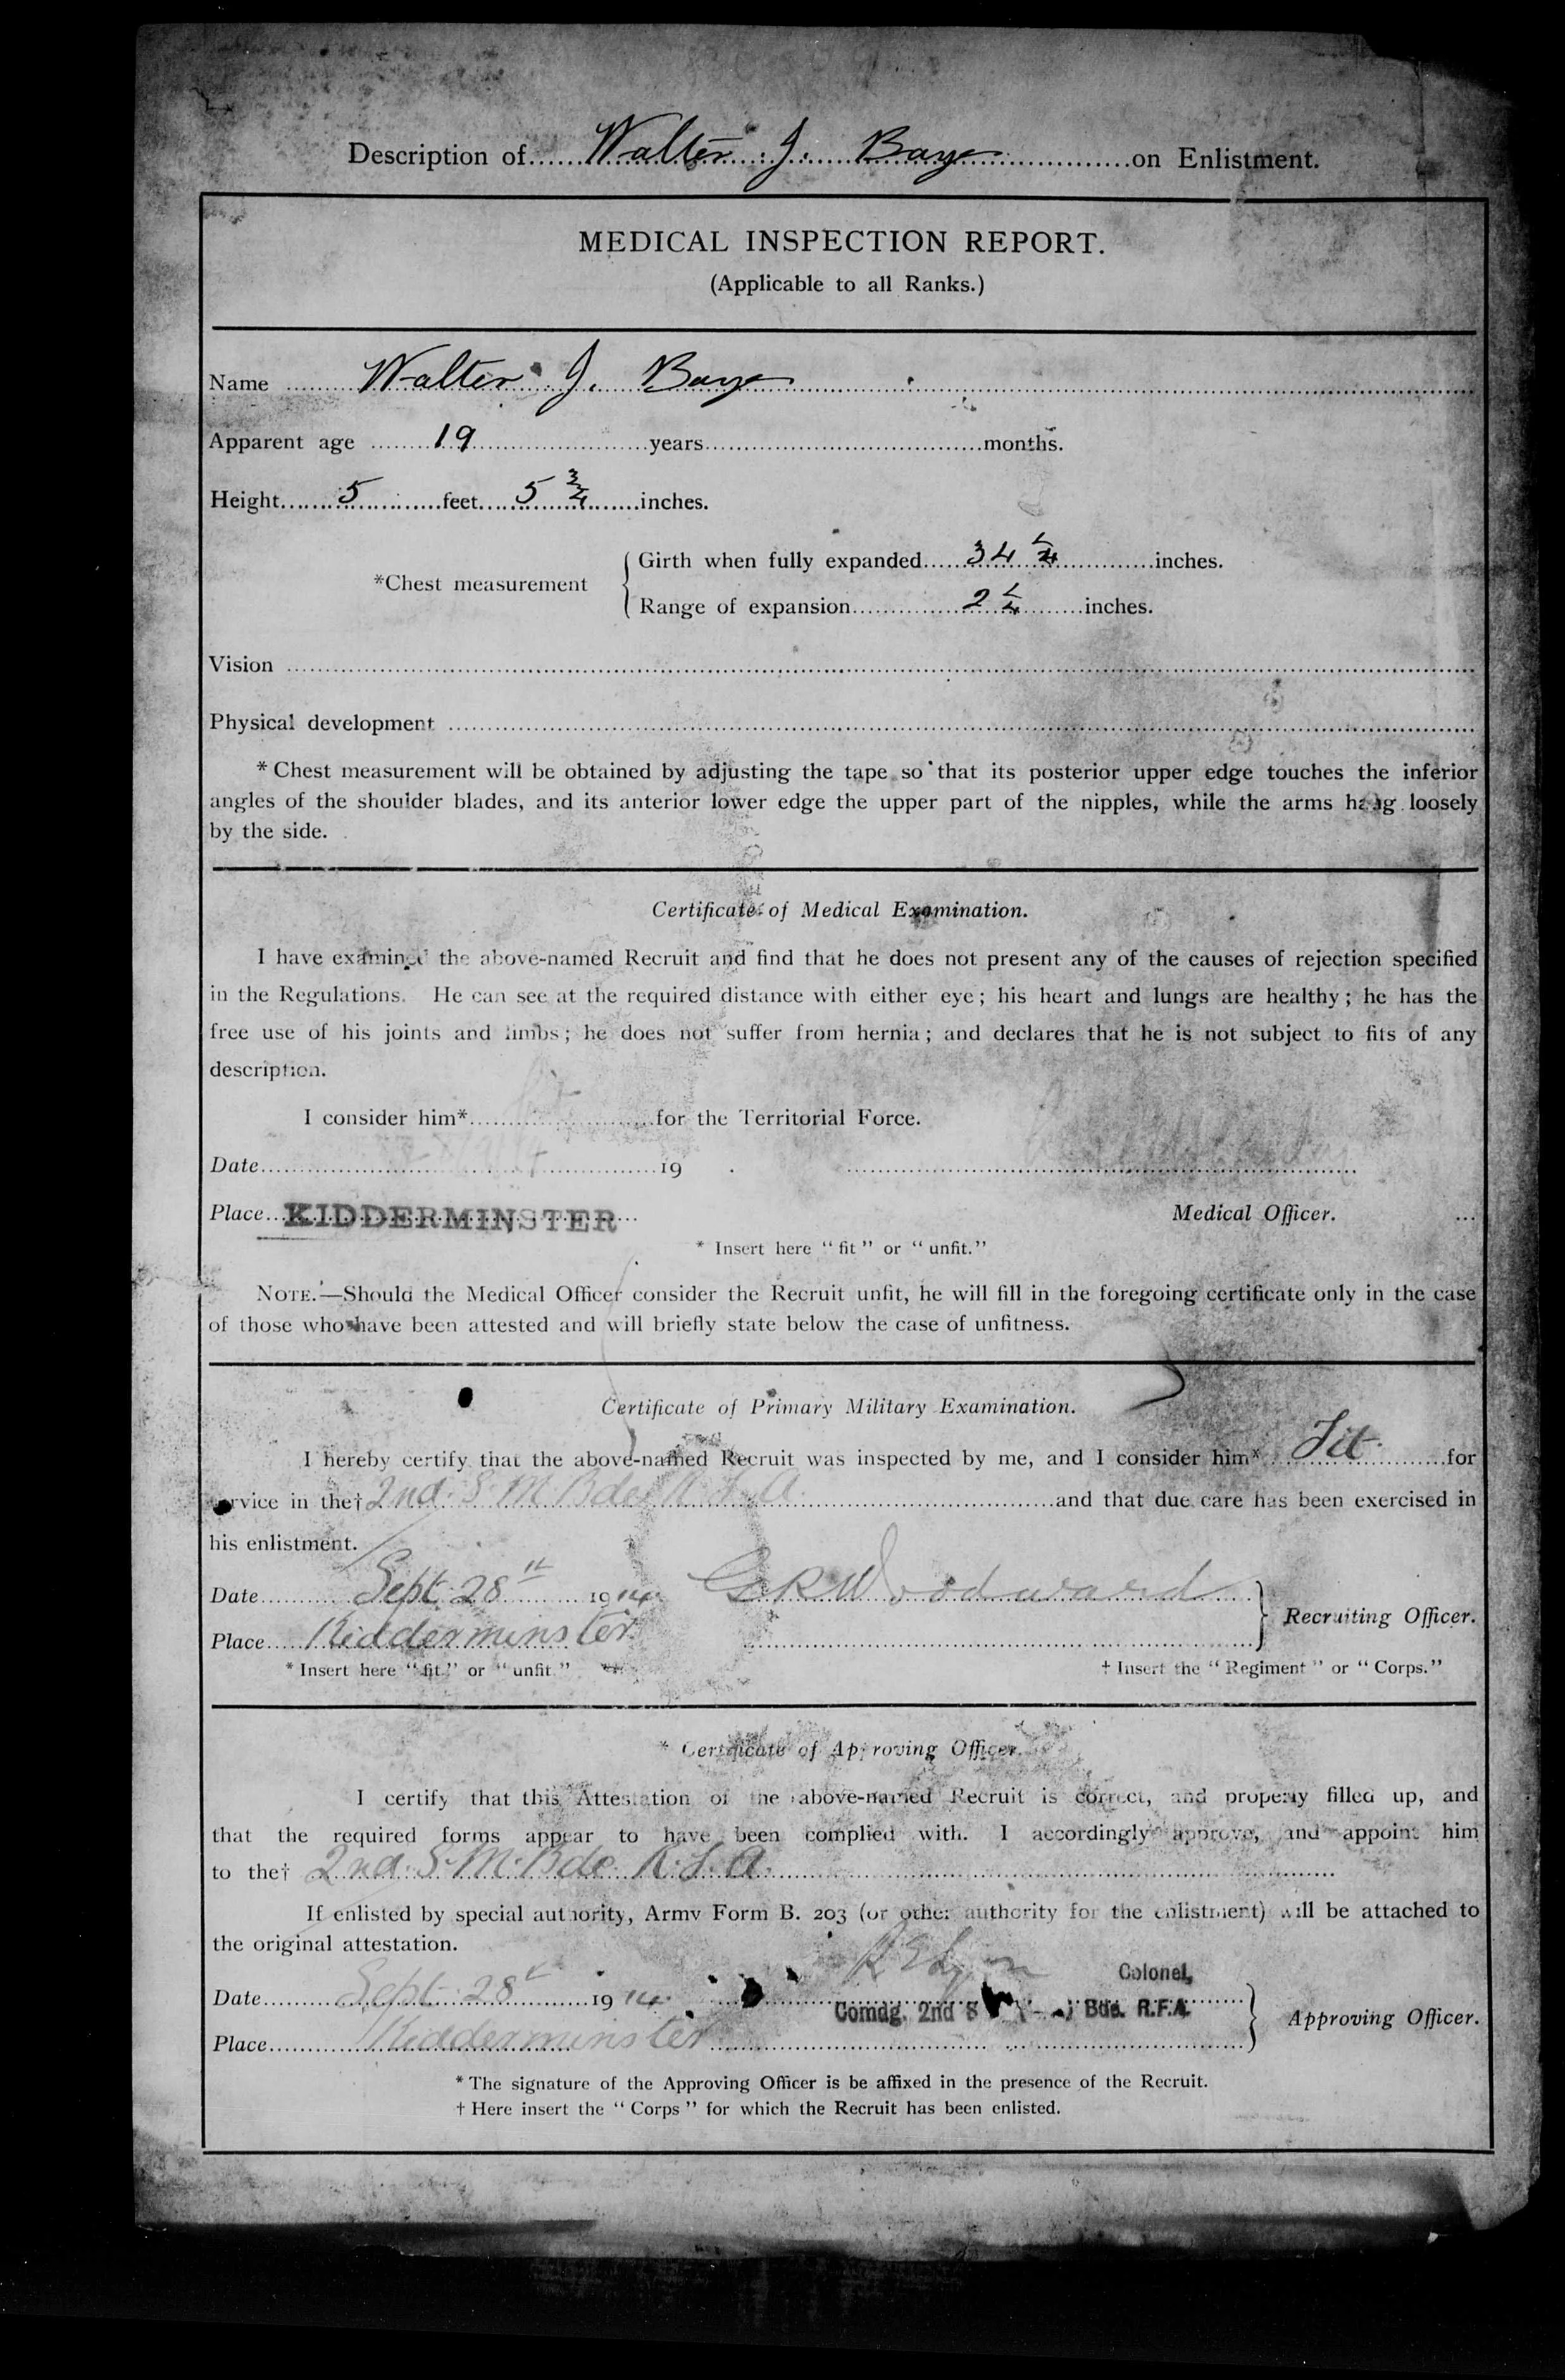 Description of Walter J. Baye on Enlistment.
MEDICAL INSPECTION REPORT.
(Applicable to all Ranks.)
Name Walter J. Baye
Apparent age 19 years months.
Height 5 feet 5 3/4 inches.
*Chest measurement
Girth when fully expanded 34 inches.
Range of expansion 2 1/4 inches.
Vision
Physical development
* Chest measurement will be obtained by adjusting the tape so that its posterior upper edge touches the inferior
angles of the shoulder blades, and its anterior lower edge the upper part of the nipples, while the arms hang loosely
by the side.
Certificate of Medical Examination.
I have examined the above-named Recruit and find that he does not present any of the causes of rejection specified
in the Regulations. He can see at the required distance with either eye; his heart and lungs are healthy; he has the
free use of his joints and limbs; he does not suffer from hernia; and declares that he is not subject to fits of any
description.
I consider him* for the Territorial Force.
Date 19
Place KIDDERMINSTER Medical Officer.
* Insert here "fit" or "unfit."
NOTE.—Should the Medical Officer consider the Recruit unfit, he will fill in the foregoing certificate only in the case
of those who have been attested and will briefly state below the case of unfitness.
Certificate of Primary Military Examination.
I hereby certify that the above-named Recruit was inspected by me, and I consider him* Fit for
service in the† 2nd. S. M. Bde R.F.A. and that due care has been exercised in
his enlistment.
Date Sept. 28th 1914 Woodward
Place Kidderminster Recruiting Officer.
* Insert here "fit" or "unfit" † Insert the "Regiment" or "Corps."
* Certificate of Approving Officer.
I certify that this Attestation of the above-named Recruit is correct, and properly filled up, and
that the required forms appear to have been complied with. I accordingly approve, and appoint him
to the† 2nd. S. M. Bde. R.F.A.
If enlisted by special authority, Army Form B. 203 (or other authority for the enlistment) will be attached to
the original attestation.
Colonel,
Date Sept 28th 1914 Comdg. 2nd S Bde. R.F.A.
Place Kidderminster Approving Officer.
* The signature of the Approving Officer is be affixed in the presence of the Recruit.
† Here insert the "Corps" for which the Recruit has been enlisted.